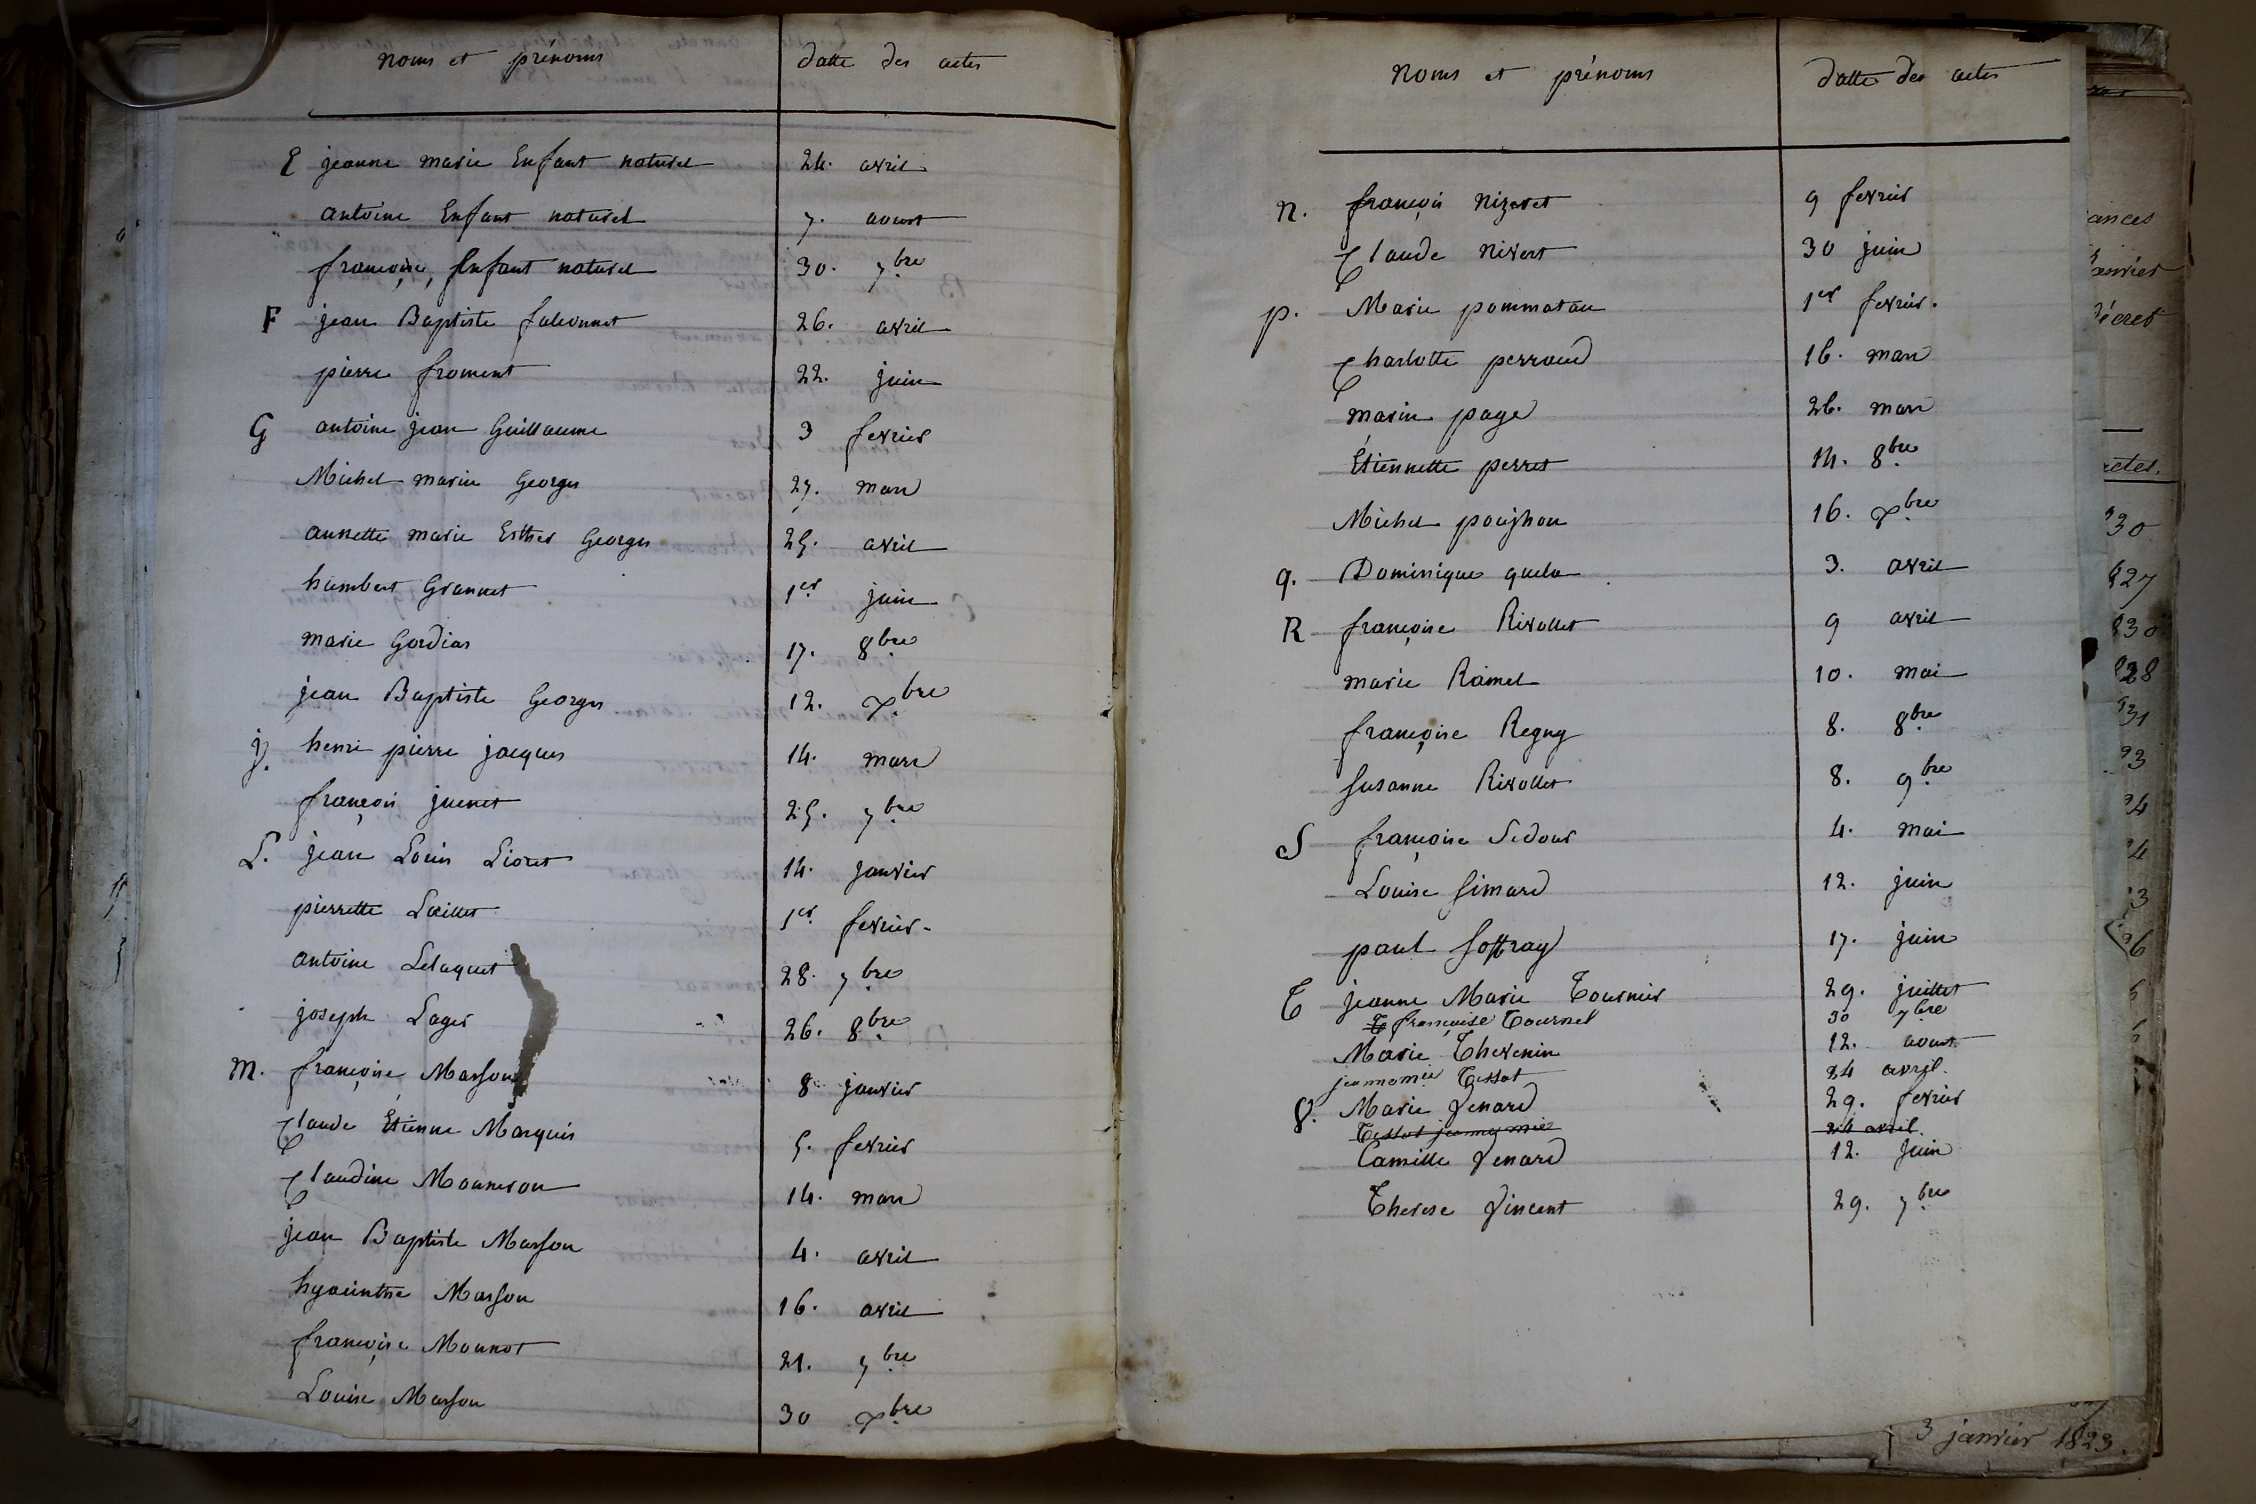 noms et prénoms datte des actes
E jeanne marie Enfant naturel 24. avril
antoine Enfant naturel 7. aoust
françoise, Enfant naturel 30. 7bre
F jean Baptiste falconnet 26. avril
pierre froment 22. juin
G antoine jean Guillaume 3 fevrier
Michel marie Georges 27. mars
annette marie Esther Georges 25. avril
humbert Grannet 1er juin
marie Gordias 17. 8bre
jean Baptiste Georges 12. Xbre
j. henri pierre jacques 14. mars
françois juenet 25. 7bre
L. jean Louis Lioret 14. janvier
pierrette Loillet 1er fevrier.
antoine Lelaquet 28. 7bre
joseph Lager 26. 8bre
M. françoise Masson 8 janvier
Claude Étienne Marquis 5. fevrier
Claudine Monneron 14. mars
jean Baptiste Masson 4. avril
hyacinthe Masson 16. avril
françoise Monnot 21. 7bre
Louise Masson 30 Xbre
noms et prénoms datte des actes
n. françois nizeret 9 fevrier
Claude nivert 30 juin
p. Marie pommatau 1er fevrier.
Charlotte perraud 16. mars
marie page 26. mars
Étiennette perret 14. 8bre
Michel 16. Xbre
q. Dominique quelu 3. avril
R françoise Rivollet 9 avril
marie Ramel 10. mai
françoise Regny 8. 8bre
Susanne Rivollet 8. 9bre
S françoise Sedour 4. mai
Louise Simard 12. juin
paul Soffray 17. juin
T jeanne Marie Tournier 29. juillet
T françoise Tournel 30 7bre
Marie Thevenin 12. aoust
jeanne mie Tissot 24 avril.
V. Marie Venard 29. fevrier
Tissot jeanne mie 24 avril.
Camille Venard 12. juin
Therese Vincent 29. 7bre
ances
janvier
décret
actes.
30
827
830
828
31
3 janvier 1823.